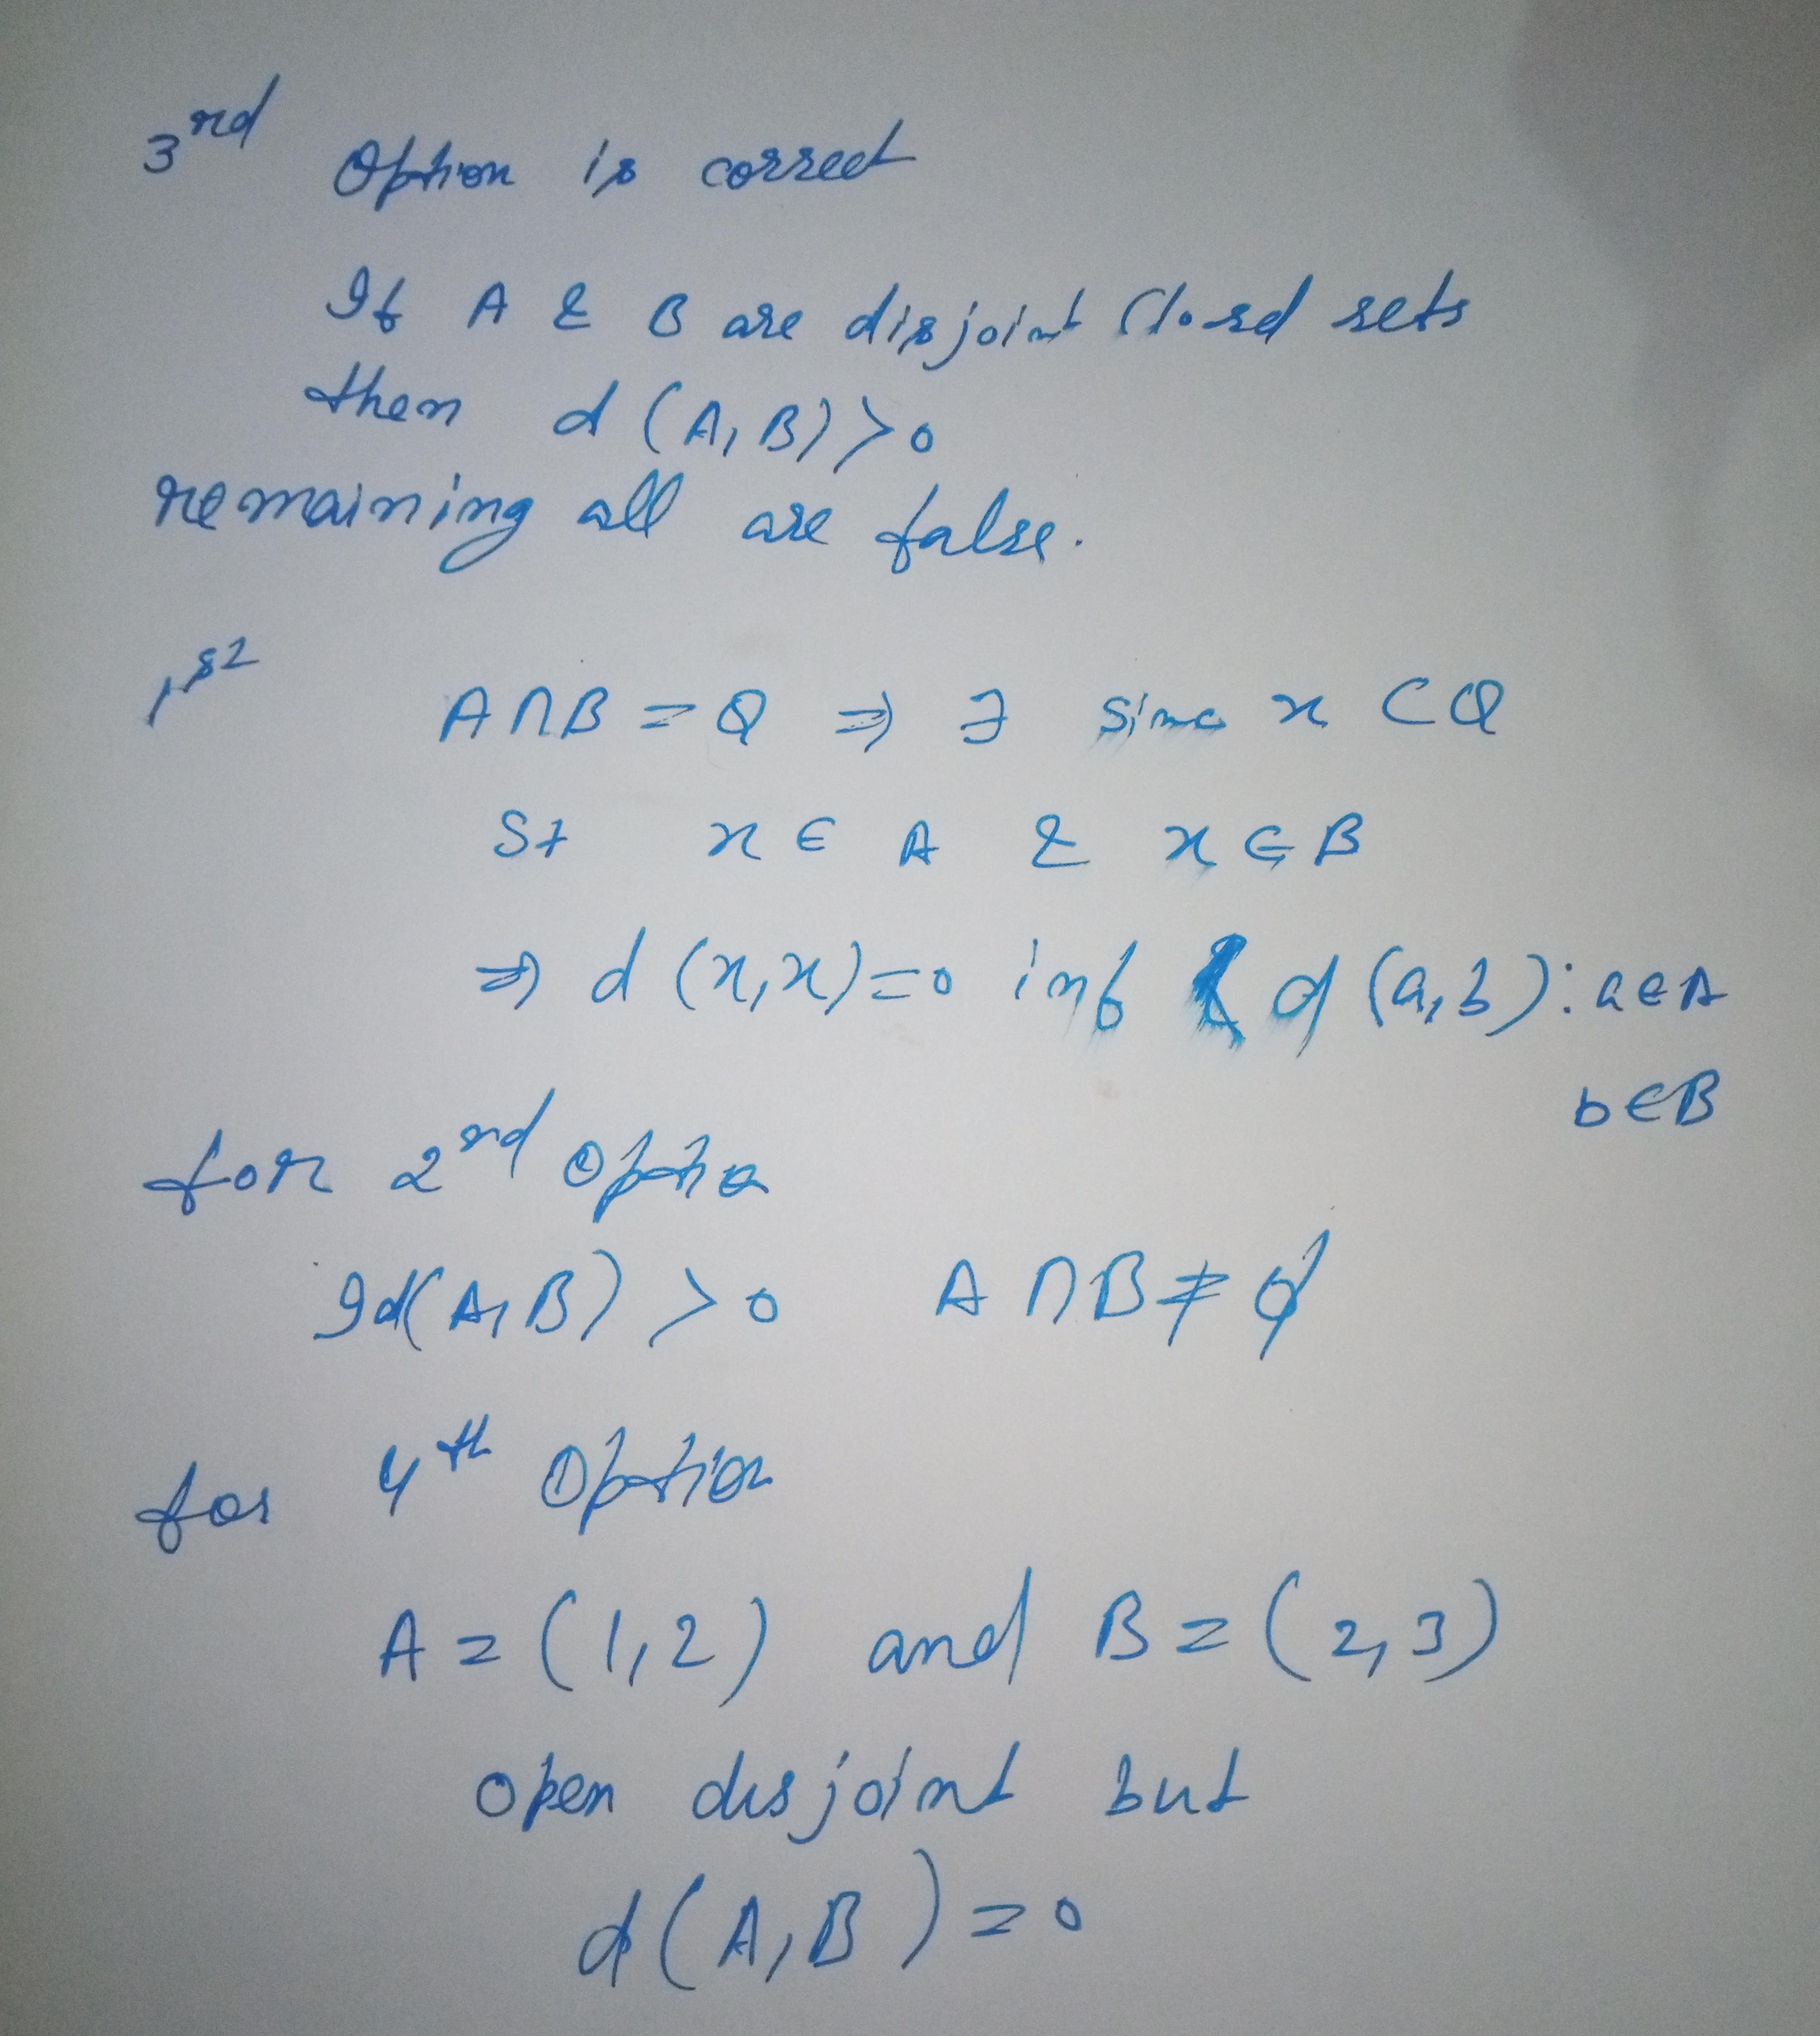 3rd Option is correct
If A & B are disjoint Closed sets
then d (A, B) > 0
remaining all are false.
1st A ∩ B = Q ⇒ ∃ x ⊂ Q
St x ∈ A & x ∈ B
⇒ d (x, x) = 0 inf { d (a, b) : a ∈ A
b ∈ B
for 2nd Option
d(A, B) > 0 A ∩ B ≠ φ
for 4th Option
A = (1, 2) and B = (2, 3)
open disjoint but
d (A, B) = 0